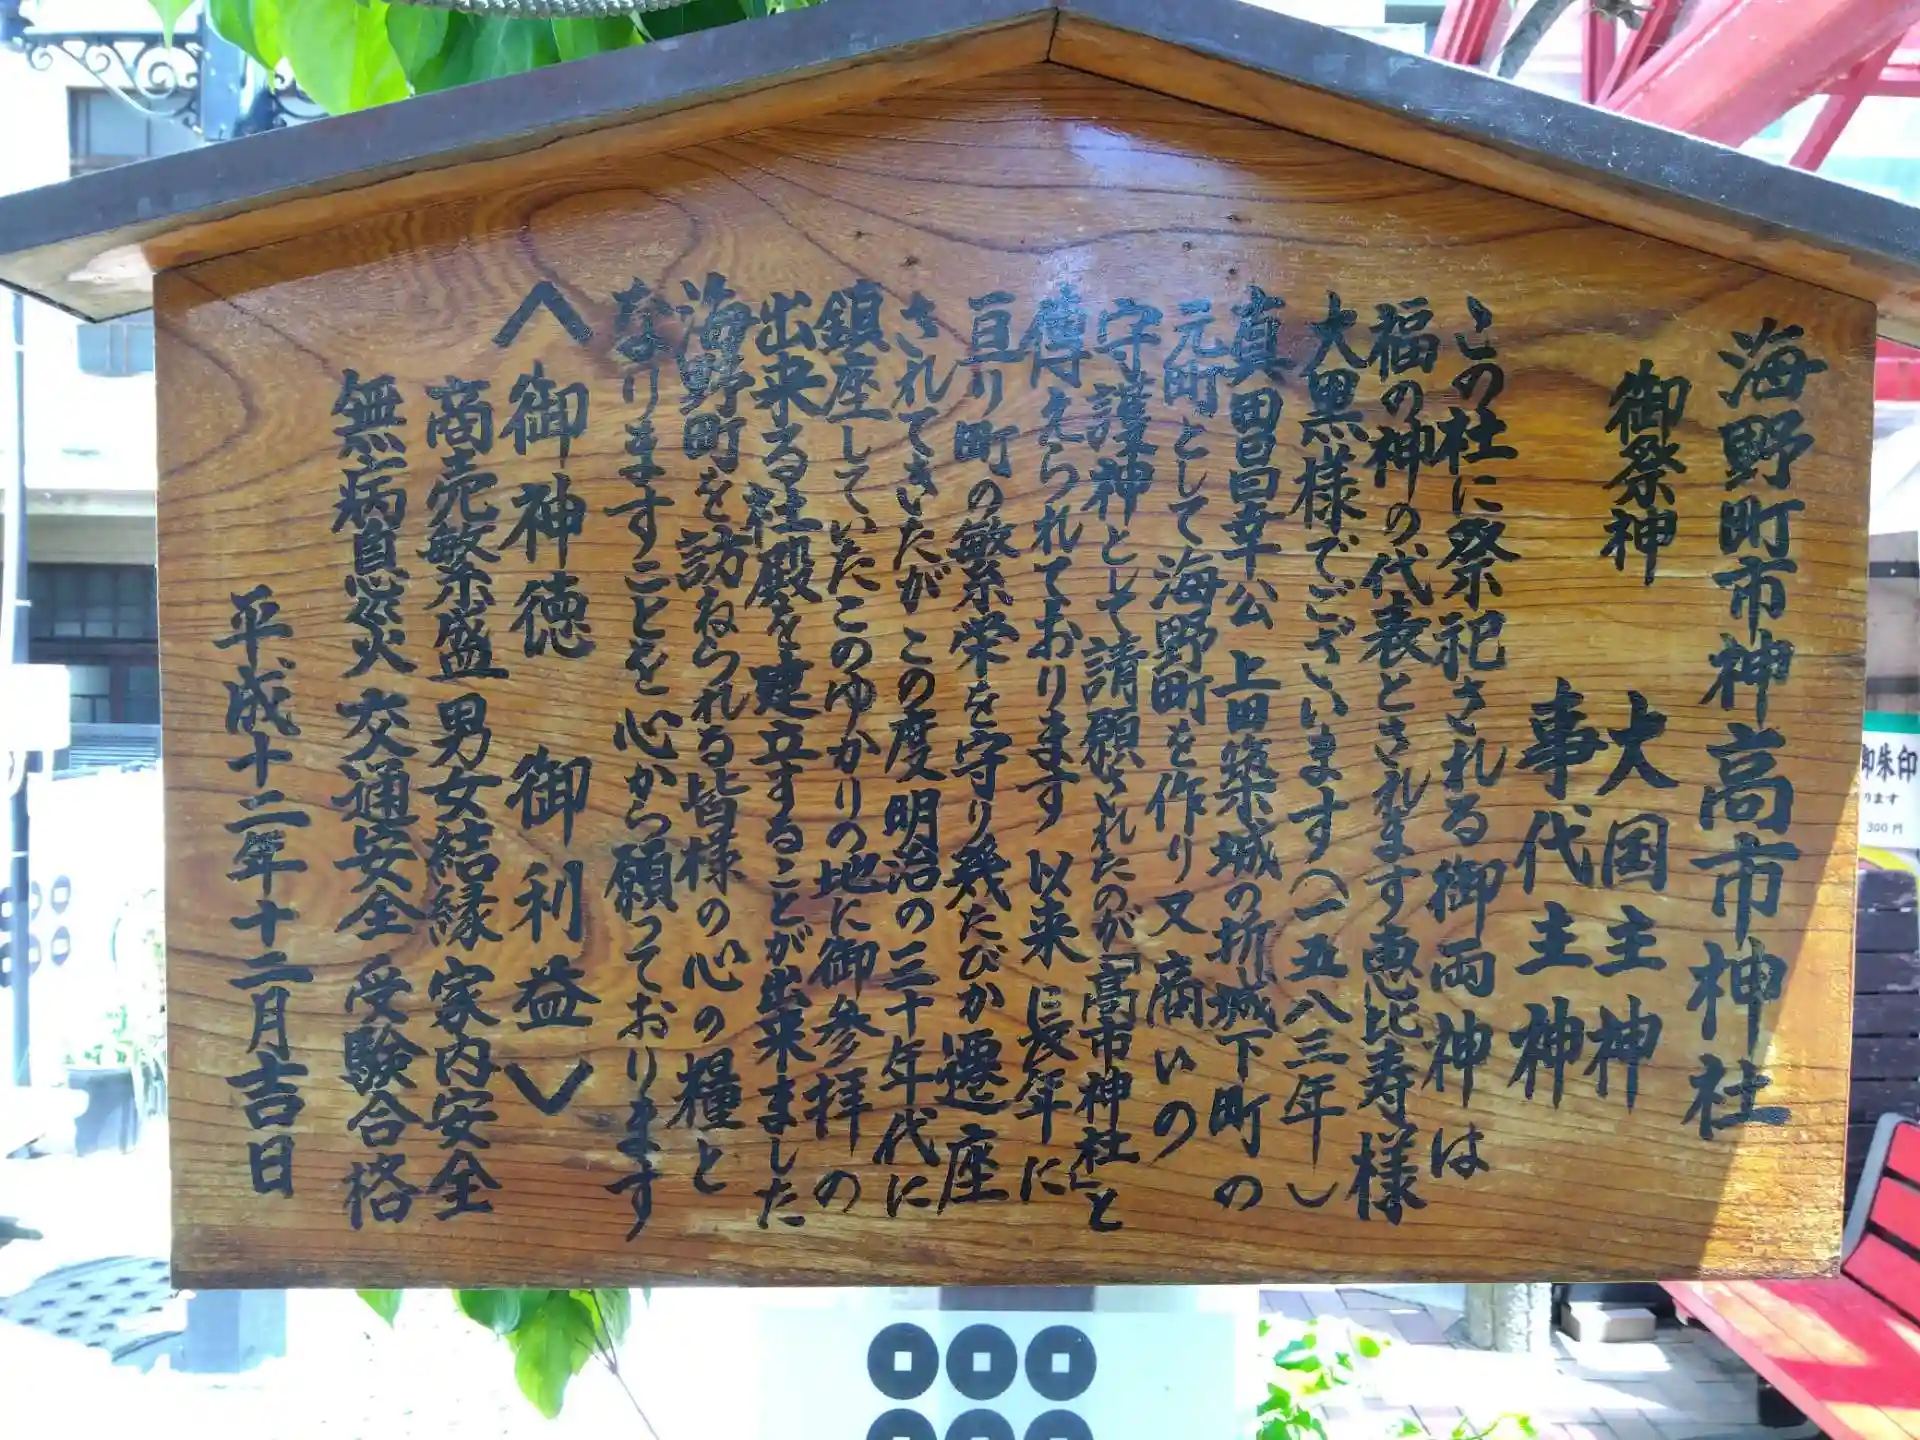 海野町市神高市神社
御祭神　大国主神
事代主神
この社に祭祀される御両神は
福の神の代表とされます恵比寿様
大黒様でございます(一五八三年)
真田昌幸公 上田築城の折城下町の
元町として海野町を作り又商いの
守護神として請願されたのが「高市神社」と
傳えられております 以来 に長年に
亘り町の繁栄を守り幾たびか遷座
されてきいたが この度明治の三十年代に
鎮座していたこのゆかりの地に御参拝の
出来る社殿を建立することが出来ました
海野町を訪ねられる皆様の心の糧と
なりますことを心から願っております
〈御神徳　御利益〉
商売繁盛 男女結縁 家内安全
無病息災 交通安全 受験合格
平成十二年十二月吉日
御朱印
ります
300円